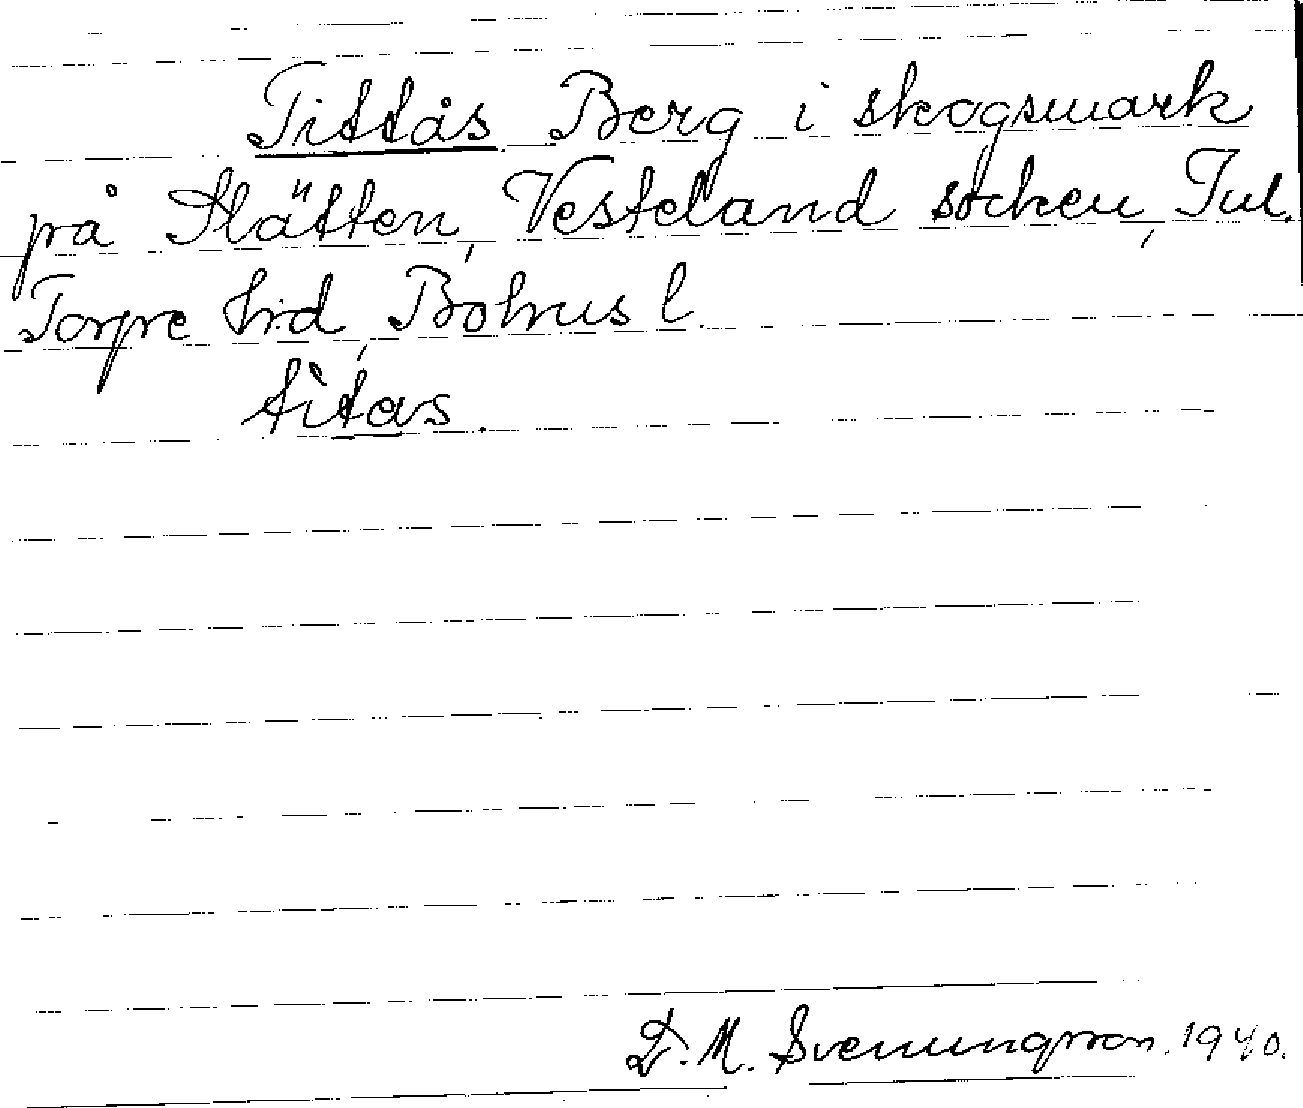 Tittås Berg i skogsmark
på Slätten, Vesteland socken, Inl.
Torpe hrd, Bohus l.
tìtas.
D. M. Svenungsson. 1940.